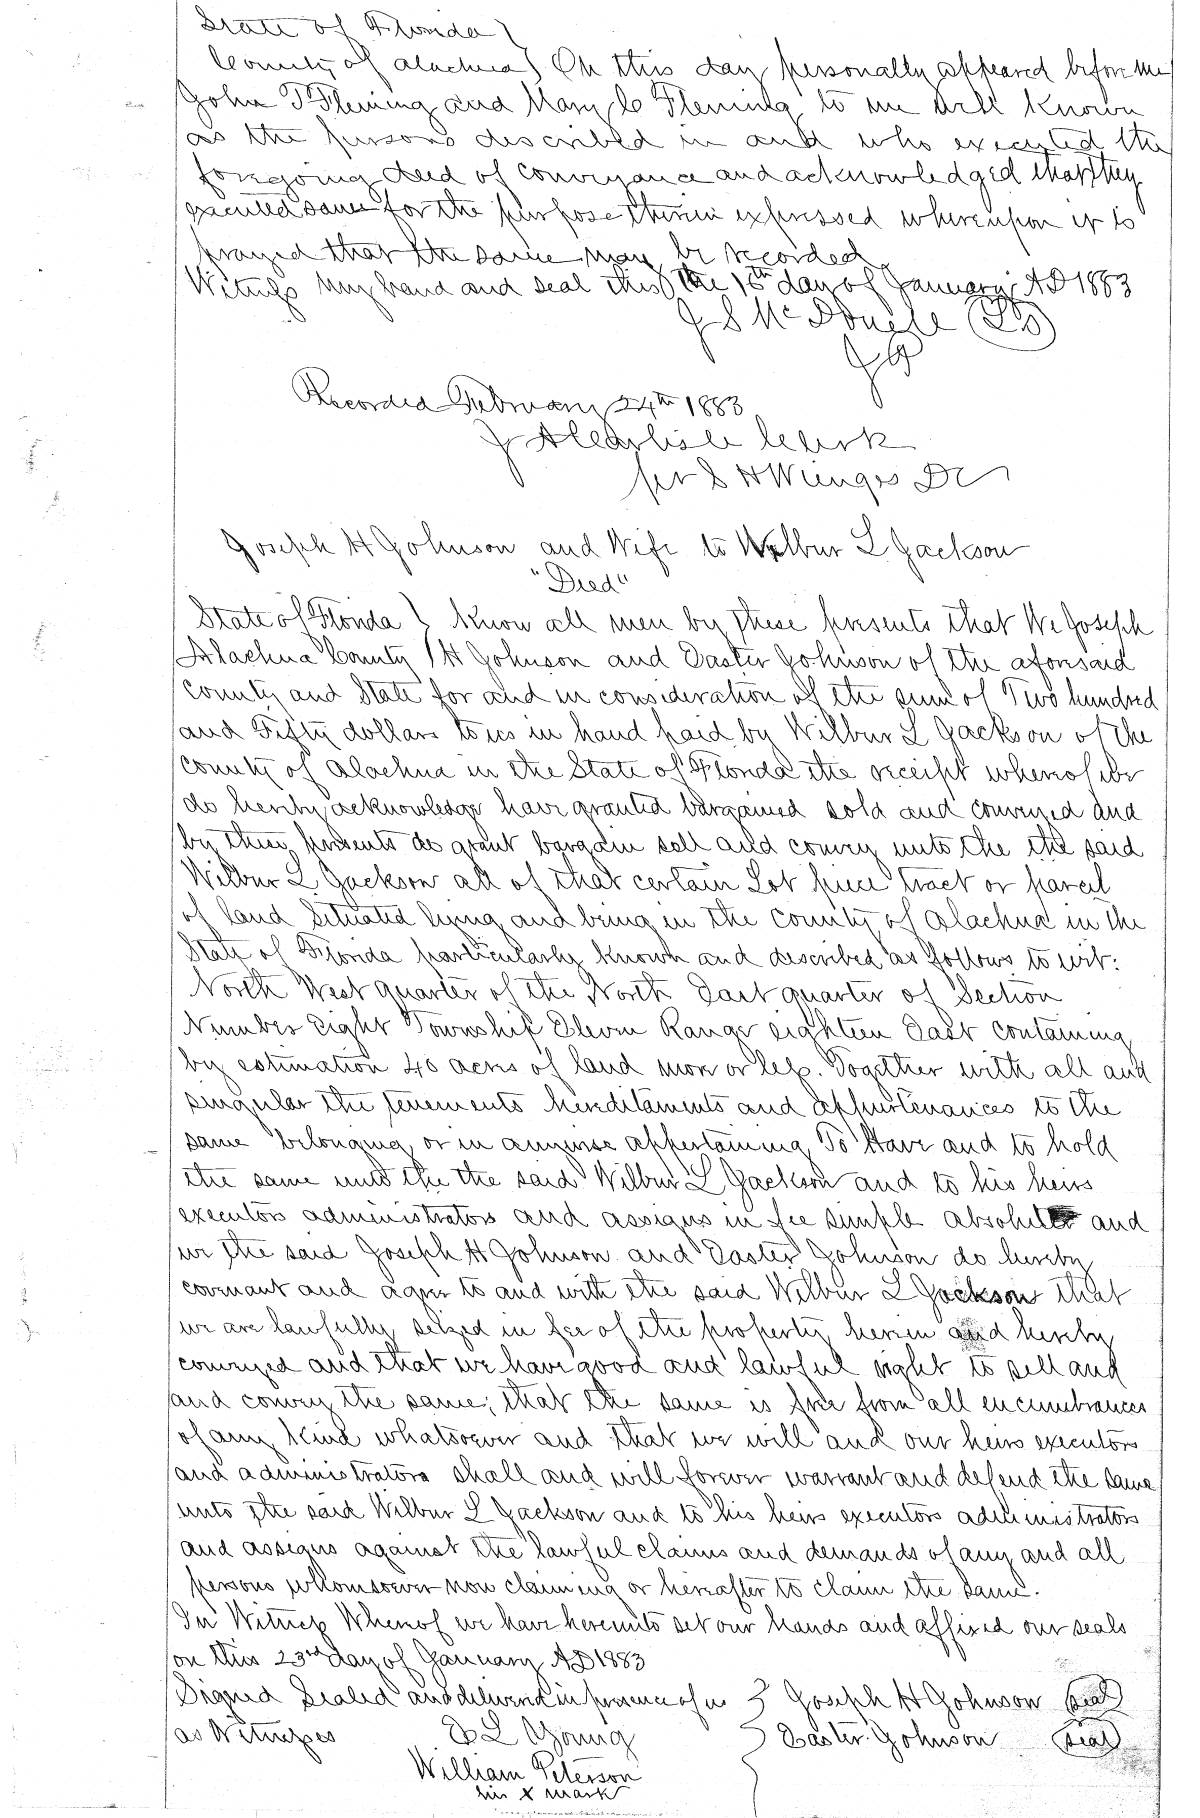 State of Florida }
County of Alachua } On this day personally appeared before me
John T Fleming and Mary C Fleming to me well known
as the persons described in and who executed the
foregoing deed of conveyance and acknowledged that they
executed same for the purpose therein expressed whereupon it is
prayed that the same may be recorded
Witness my hand and seal this the 15th day of January AD 1883
J S McDonell (LS)
JP
Recorded February 24th 1883
J A Carlisle Clerk
per S H Wienges DC
Joseph H Johnson and Wife to Wilbur L Jackson
"Deed"
State of Florida } Know all men by these presents that We Joseph
Alachua County } H Johnson and Easter Johnson of the aforesaid
County and State for and in consideration of the sum of Two hundred
and Fifty dollars to us in hand paid by Wilbur L Jackson of the
County of Alachua in the State of Florida the receipt whereof we
do hereby acknowledge have granted bargained sold and conveyed and
by these presents do grant bargain sell and convey unto the the said
Wilbur L Jackson all of that certain Lot piece tract or parcel
of land Situated lying and being in the County of Alachua in the
State of Florida particularly known and described as follows to wit:
North West quarter of the North East quarter of Section
Number Eight Township Eleven Range eighteen East containing
by estimation 40 acres of land more or less. Together with all and
singular the tenements hereditaments and appurtenances to the
same belonging or in anywise appertaining To Have and to hold
the same unto the the said Wilbur L Jackson and to his heirs
executors administrators and assigns in fee simple absolute and
we the said Joseph H Johnson and Easter Johnson do hereby
covenant and agree to and with the said Wilbur L Jackson that
we are lawfully seized in fee of the property herein and hereby
conveyed and that we have good and lawful right to sell and
and convey the same; that the same is free from all encumbrances
of any kind whatsoever and that we will and our heirs executors
and administrators shall and will forever warrant and defend the same
unto the said Wilbur L Jackson and to his heirs executors administrators
and assigns against the lawful claims and demands of any and all
persons whomsoever now claiming or hereafter to claim the same.
In Witness Whereof we have hereunto set our hands and affixed our seals
on this 23rd day of January AD 1883
Signed Sealed and delivered in presence of us } Joseph H Johnson (seal)
as Witnesses E L Young } Easter Johnson (seal)
William Peterson
his X mark